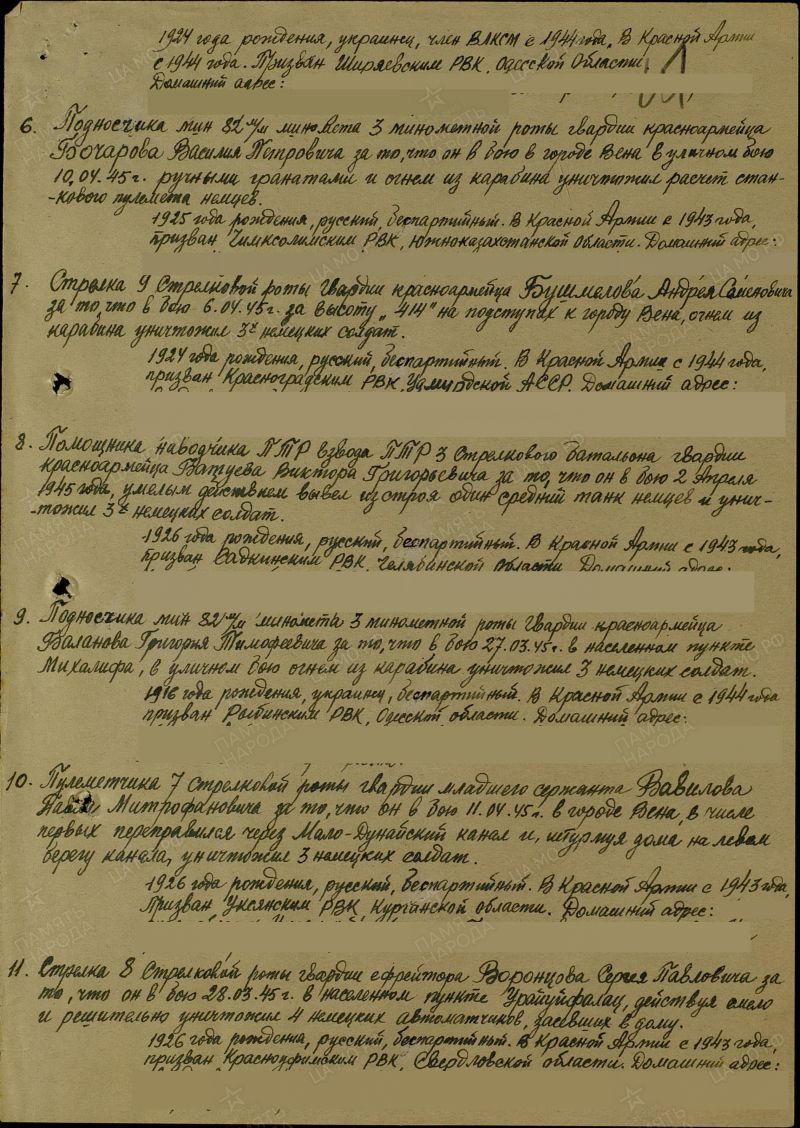 1924 года рождения, украинец, член ВЛКСМ с 1944 года. В Красной Армии
с 1944 года. Призван Ширяевским РВК, Одесской Области
Домашний адрес:
6. Подносчика мин 82 м/м миномета 3 минометной роты гвардии красноармейца
Бочарова Василия Петровича за то, что он в бою в городе Вена в уличном бою
10.04.45г. ручными гранатами и огнем из карабина уничтожил расчет стан-
-кового пулемета немцев.
1925 года рождения, русский, беспартийный. В Красной Армии с 1943 года,
призван РВК, Южноказахстанской области. Домашний адрес:
7. Стрелка 9 Стрелковой роты гвардии красноармейца Бушмелова Андрея Семеновича
за то, что в бою 6.04.45г. за высоту „414" на подступах к городу Вена, огнем из
карабина уничтожил 3х немецких солдат.
1924 года рождения, русский, беспартийный. В Красной Армии с 1944 года,
призван Красноградским РВК, АССР. Домашний адрес:
8. Помощника наводчика ПТР взвода ПТР 3 Стрелкового батальона гвардии
красноармейца Батуева Виктора Григорьевича за то, что он в бою 2 Апреля
1945 года, умелым действием вывел из строя один средний танк немцев и унич-
-тожил 3х немецких солдат.
1926 года рождения, русский, беспартийный. В Красной Армии с 1943 года,
призван Садкинским РВК, Челябинской области. Домашний адрес:
9. Подносчика мин 82 м/м миномета 3 минометной роты гвардии красноармейца
Баланова Григория Тимофеевича за то, что в бою 27.03.45г. в населенном пункте
Михалифа, в уличном бою огнем из карабина уничтожил 3 немецких солдат.
1916 года рождения, украинец, беспартийный. В Красной Армии с 1944 года
призван РВК, Одесской области. Домашний адрес:
10. Пулеметчика 7 стрелковой роты гвардии младшего сержанта Вавилова
Митрофановича за то, что он в бою 11.04.45г. в городе Вена, в числе
первых переправился через Мало-Дунайский канал и, штурмуя дома на левом
берегу канала, уничтожил 3 немецких солдат.
1926 года рождения, русский, беспартийный. В Красной Армии с 1943 года,
Призван Уксянским РВК, Курганской области. Домашний адрес:
11. Стрелка 8 Стрелковой роты гвардии ефрейтора Воронцова Сергея Павловича за
то, что он в бою 28.03.45г. в населенном пункте Урайуйфалац, действуя смело
и решительно уничтожил 4 немецких автоматчиков, засевших в дому.
1926 года рождения, русский, беспартийный. В Красной Армии с 1943 года,
призван Красноуфимским РВК, Свердловской области. Домашний адрес: